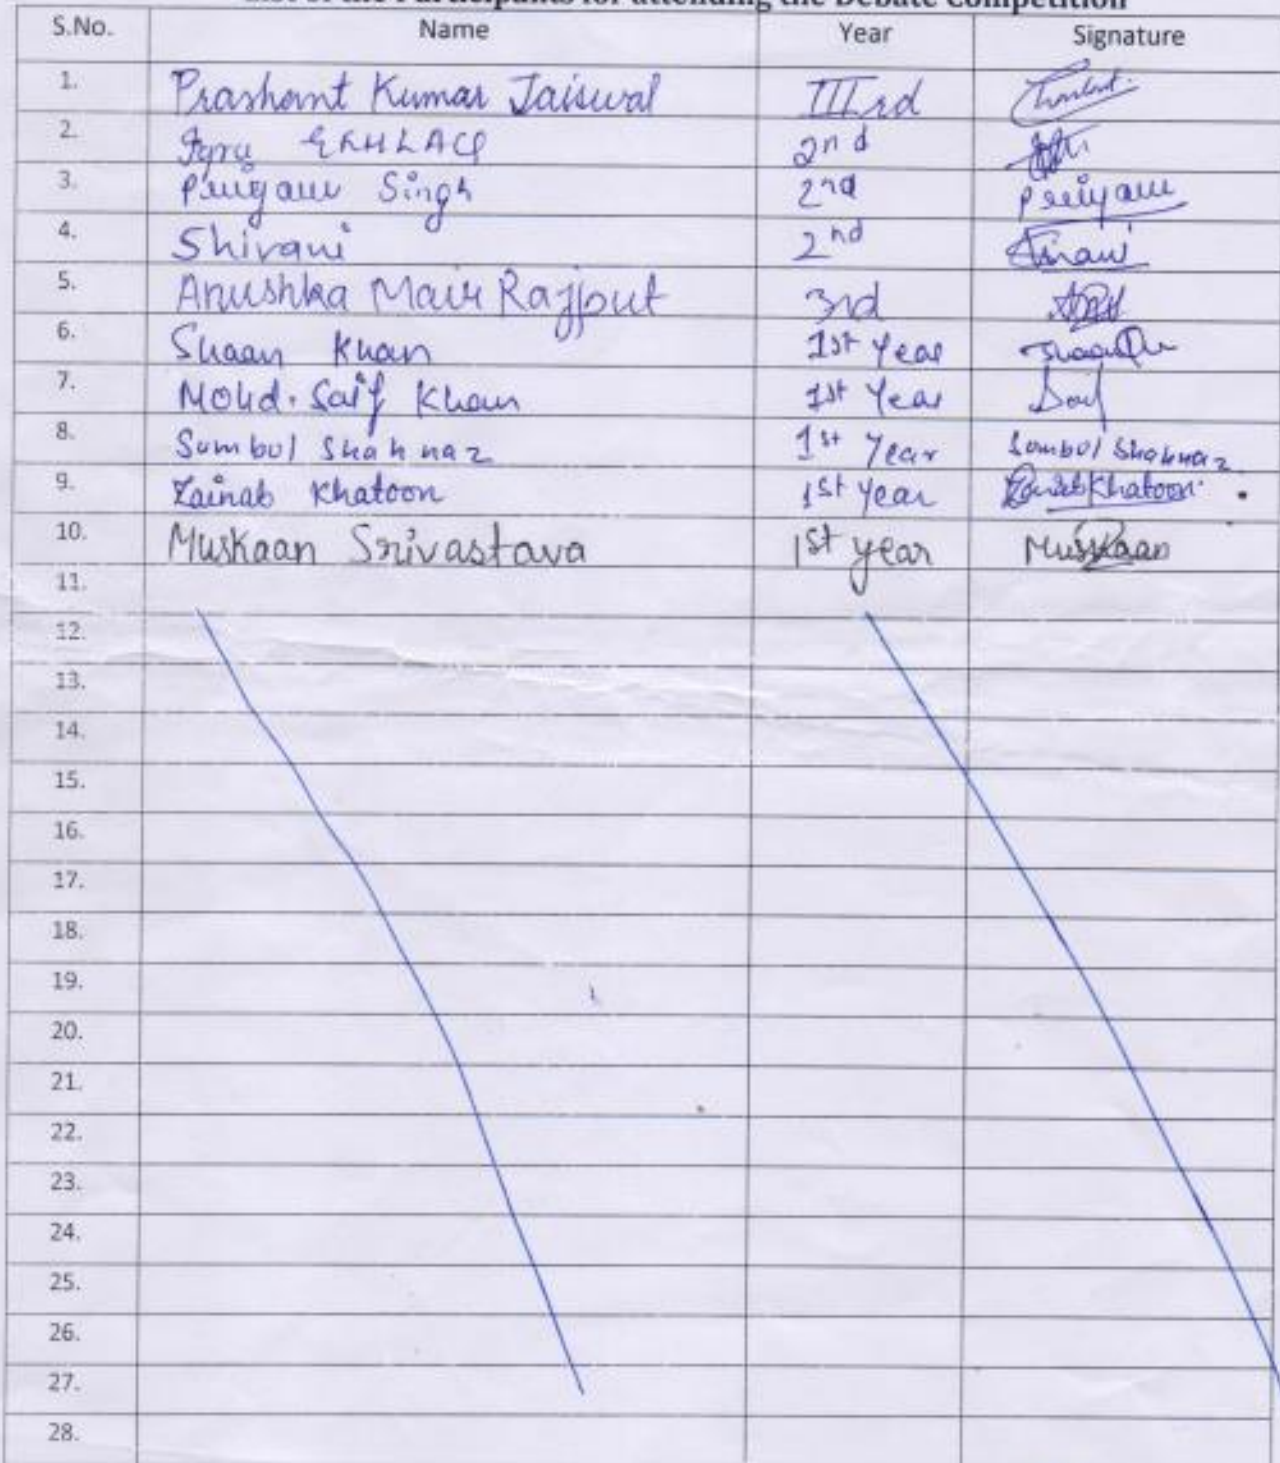 List of the Participants for attending the Debate Competition
S.No. Name Year Signature
1. Prashant Kumar Jaiswal IIIrd
2. Iqra 2nd
3. Priyam Singh 2nd Priyam
4. Shivani 2nd
5. Anushka Mair Rajput 3rd
6. Shaan Khan 1st Year
7. Mohd. Saif Khan 1st Year
8. Sumbul Shahnaz 1st Year Sumbul Shahnaz
9. Zainab Khatoon 1st year Zainab Khatoon
10. Muskaan Srivastava 1st year Muskaan
11.
12.
13.
14.
15.
16.
17.
18.
19.
20.
21.
22.
23.
24.
25.
26.
27.
28.